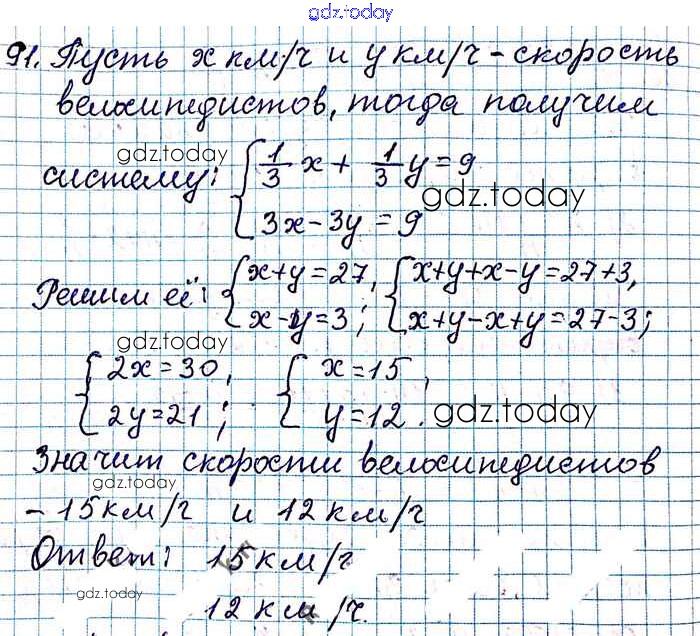 gdz.today
91. Пусть x км/ч и y км/ч - скорость
велосипедистов, тогда получим
gdz.today
систему: { 1/3 x + 1/3 y = 9
gdz.today
3x - 3y = 9
Решим её: { x+y=27, { x+y+x-y=27+3,
x-y=3; x+y-x+y=27-3;
gdz.today
{ 2x=30, { x=15,
2y=21; y=12. gdz.today
Значит скорости велосипедистов
gdz.today
- 15 км/ч и 12 км/ч
Ответ: 15 км/ч
gdz.today
12 км/ч.